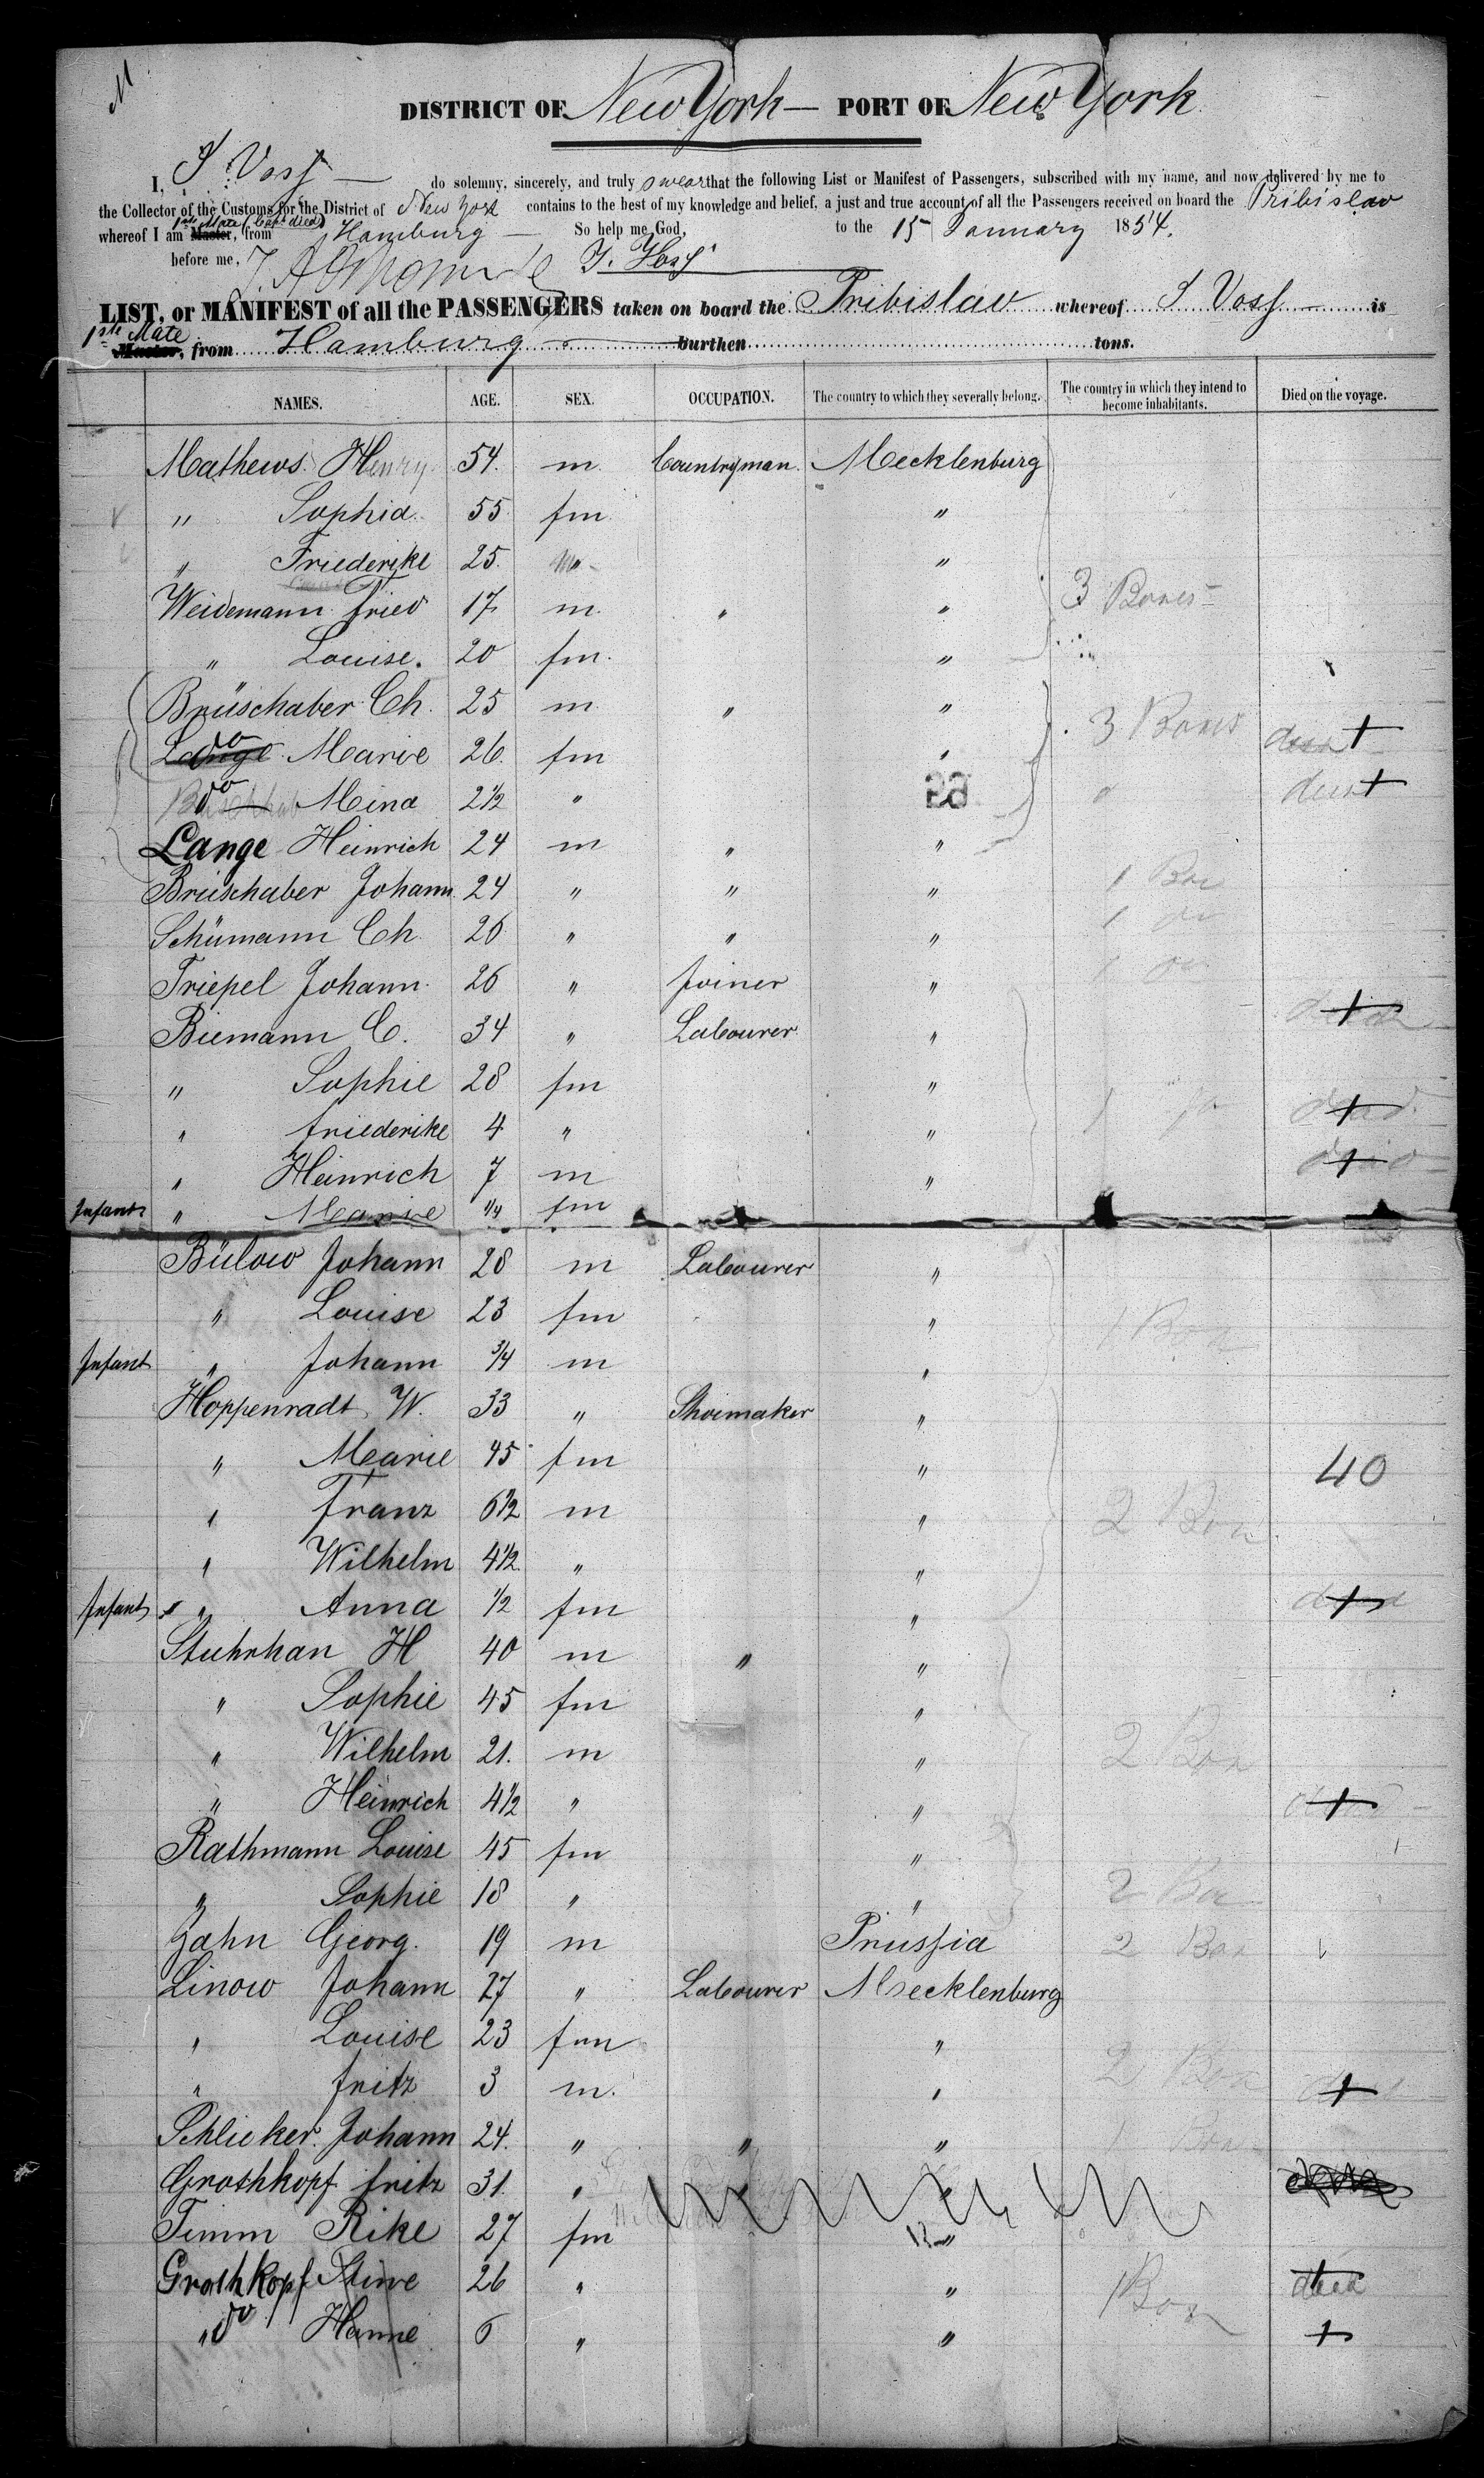 M
DISTRICT OF New York — PORT OF New York
I, J Voss — do solemny, sincerely, and truly swear that the following List or Manifest of Passengers, subscribed with my name, and now delivered by me to
the Collector of the Customs for the District of New York contains to the best of my knowledge and belief, a just and true account of all the Passengers received on board the Pribislaw
whereof I am Master, 1ste Mate (Capt died) from Hamburg — So help me God, to the 15 January 1854.
before me, J. Voss
LIST, or MANIFEST of all the PASSENGERS taken on board the Pribislaw whereof J Voss — is
1ste Mate
Master, from Hamburg — burthen tons.
NAMES. AGE. SEX. OCCUPATION. The country to which they severally belong. The country in which they intend to become inhabitants. Died on the voyage.
Mathews Henry 54. m. Countryman. Mecklenburg
" Sophia 55 fm. "
" Friederike 25. "
Weidemann Fried 17 m. " " 3 Boxes
" Louise. 20 fm. "
Brüschaber Ch. 25 m " "
Lange do Marie 26. fm " 3 Boxes dead +
do Mina 2 1/2 " dead +
Lange Heinrich 24 m " "
Brüschaber Johann 24 " " " 1 Box
Schümann Ch. 26 " " " 1 do
Triepel Johann. 26 " Joiner " 1 do
Biemann C. 34 " Labourer " dead +
" Sophie 28 fm "
" Friederike 4 " " 1 do dead +
" Heinrich 7 m " dead +
Infant " Marie 1/4 fm
Bülow Johann 28 m Labourer "
" Louise 23 fm " 1 Box
Infant " Johann 3/4 m "
Hoppenradt W. 33 " Shoemaker "
" Marie 45 fm " 40
" Franz 6 1/2 m " 2 Box
" Wilhelm 4 1/2 " "
Infant " Anna 1/2 fm " dead +
Stuhrhan H 40 m " "
" Sophie 45 fm "
" Wilhelm 21. m " 2 Box
" Heinrich 4 1/2 " " dead +
Rathmann Louise 45 fm "
" Sophie 18 " " 2 Box
Zahn Georg. 19 m Prussia 2 Box
Linow Johann 27 " Labourer Mecklenburg
" Louise 23 fm "
" Fritz 3 m. " 2 Box +
Schlieker Johann 24. " " " 1 Box
Grothkopf Fritz 31. " " "
Timm Rike 27 fm "
Grothkopf Stine 26 " " 1 Box dead +
" do Hanne 6 " " +